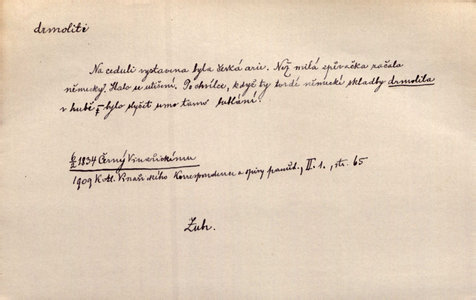 drmoliti
Na ceduli vystavena byla česká arie. Než milá zpěvačka začala
německy. Stalo se utišení. Po chvilce, když ty tvrdé německé skladby drmolila
v hubě, bylo slyšet tamo
1834 Černý Vinařickému
1909 K. Al. Vinařického Korespondence a spisy pamět., II. 1., str. 65
Zub.